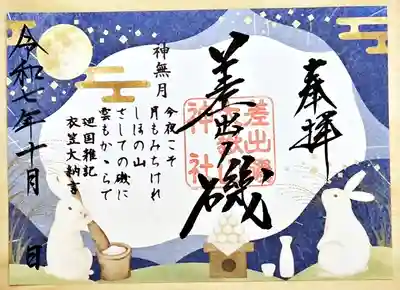 奉拝
差出ノ磯
差出磯
神社
神無月
今夜こそ
月もみちけれ
しほの山
さしての磯に
雲もかゝらで
廻国雑記
衣笠大納言
令和七年十月 日